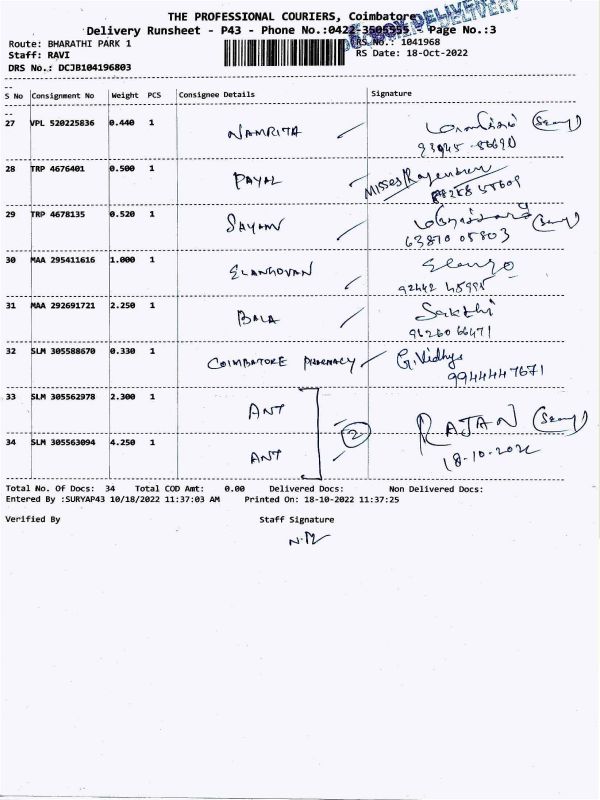 THE PROFESSIONAL COURIERS, Coimbatore
Delivery Runsheet - P43 - Phone No.:0422-3505355 - Page No.:3
Route: BHARATHI PARK 1 RS No.: 1041968
Staff: RAVI RS Date: 18-Oct-2022
DRS No.: DCJB104196803
S No Consignment No Weight PCS Consignee Details Signature
27 VPL 520225836 0.440 1 NAMRITA
28 TRP 4676401 0.500 1 PAYAL Misses/Rajendran
29 TRP 4678135 0.520 1 SAYANV
63810 05803
30 MAA 295411616 1.000 1 ELANGOVAN Elango
31 MAA 292691721 2.250 1 BALA Sakthi
32 SLM 305588670 0.330 1 COIMBATORE PHARMACY G. Vidhya
9944447671
33 SLM 305562978 2.300 1 ANT
2 RAJAN
34 SLM 305563094 4.250 1 ANT 18-10-2022
Total No. Of Docs: 34 Total COD Amt: 0.00 Delivered Docs: Non Delivered Docs:
Entered By :SURYAP43 10/18/2022 11:37:03 AM Printed On: 18-10-2022 11:37:25
Verified By Staff Signature